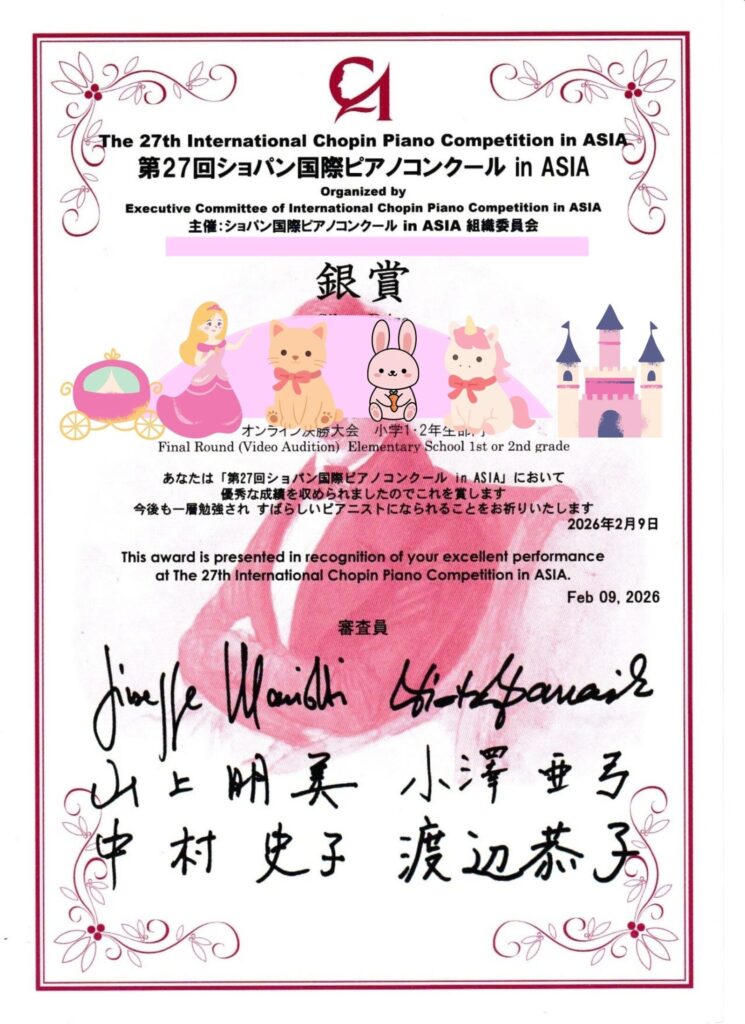 The 27th International Chopin Piano Competition in ASIA
第27回ショパン国際ピアノコンクール in ASIA
Organized by
Executive Committee of International Chopin Piano Competition in ASIA
主催:ショパン国際ピアノコンクール in ASIA 組織委員会
銀賞
オンライン決勝大会 小学1・2年生部門
Final Round (Video Audition) Elementary School 1st or 2nd grade
あなたは「第27回ショパン国際ピアノコンクール in ASIA」において
優秀な成績を収められましたのでこれを賞します
今後も一層勉強され すばらしいピアニストになられることをお祈りいたします
2026年2月9日
This award is presented in recognition of your excellent performance
at The 27th International Chopin Piano Competition in ASIA.
Feb 09, 2026
審査員
山上明美 小澤亜弓
中村史子 渡辺恭子